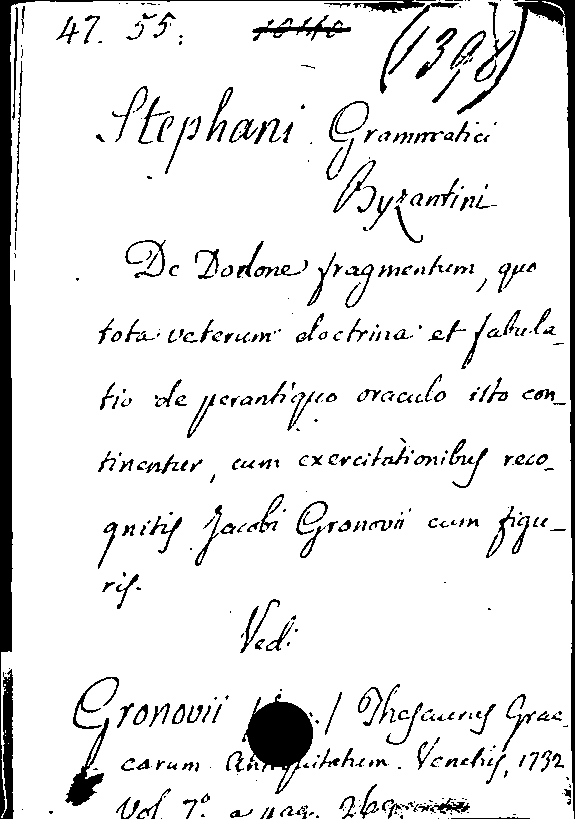 47. 55: (1398)
Stephani Grammatici
Byzantini
De Dodone fragmentum, quo
tota veterum doctrina et fabula-
tio de perantiquo oraculo isto con-
tinentur, cum exercitationibus reco-
gnitis Jacobi Gronovii cum figu-
ris.
Vedi
Gronovii / / Thesaurus Grae-
carum Antiquitatum. Venetiis, 1732
Vol. 7.º a pag.